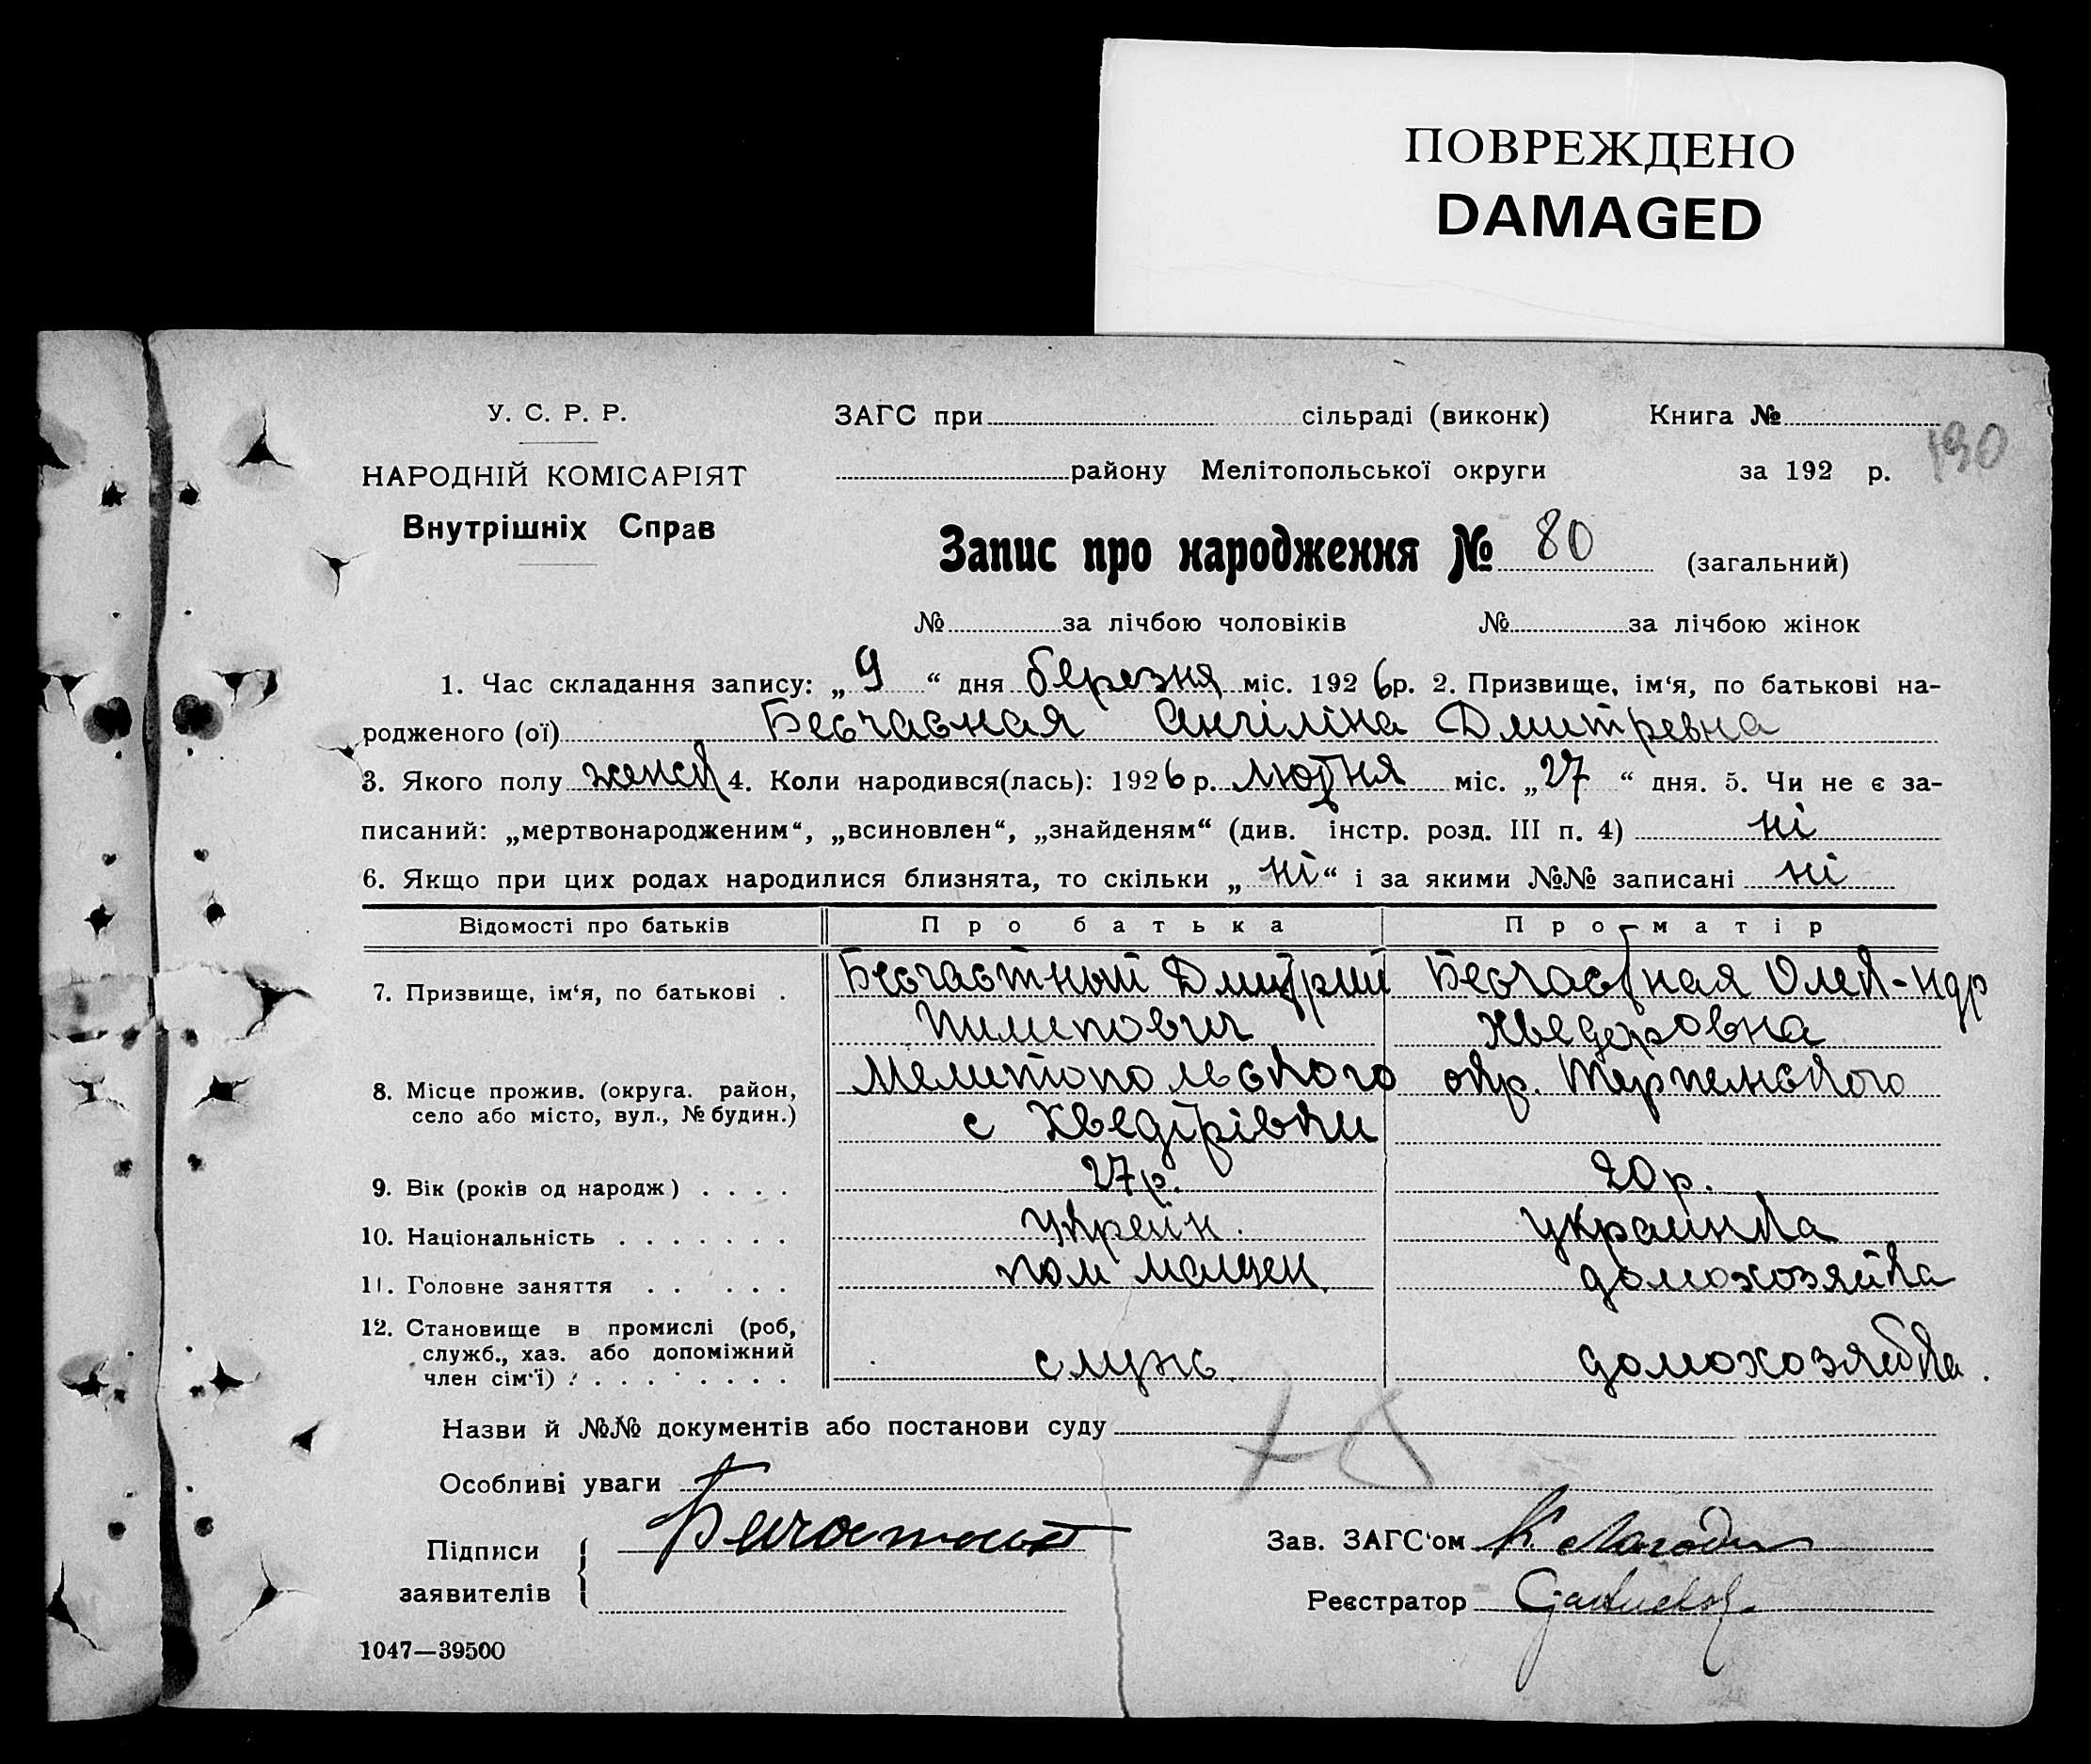 ПОВРЕЖДЕНО
DAMAGED
У. С. Р. Р.
НАРОДНІЙ КОМІСАРІЯТ
Внутрішніх Справ
ЗАГС при сільраді (виконк) Книга №
190
району Мелітопольської округи за 192 р.
Запис про народження № 80 (загальний)
№ за лічбою чоловіків № за лічбою жінок
1. Час складання запису: „9“ дня березня міс. 1926 р. 2. Призвище, ім‘я, по батькові на-
родженого (ої) Бесчасная Ангіліна Дмитревна
3. Якого полу женск 4. Коли народився(лась): 1926 р. лютня міс. „27“ дня. 5. Чи не є за-
писаний: „мертвонародженим“, „всиновлен“, „знайденям“ (див. інстр. розд. III п. 4) ні
6. Якщо при цих родах народилися близнята, то скільки „ні“ і за якими №№ записані ні
Відомості про батьків Про батька Про матір
7. Призвище, ім‘я, по батькові . Бесчастный Дмитрий Бесчастная Олек-ндр
Пилипович Хведоровна
8. Місце прожив. (округа. район, Мелитопольского окр. Терпенского
село або місто, вул., № будин.) с Хведірівки
9. Вік (років од народж) . . . . 27 р. 20 р.
10. Національність . . . . . . . украін. украинка
11. Головне заняття . . . . . пом домохозяйка
12. Становище в промислі (роб, служб., хаз. або допоміжний член сім‘ї) . . . . . . . . служ. домохозяйка.
Назви й №№ документів або постанови суду
Особливі уваги
Підписи
заявителів
Бесчастный
Зав. ЗАГС‘ом
Реєстратор
1047—39500